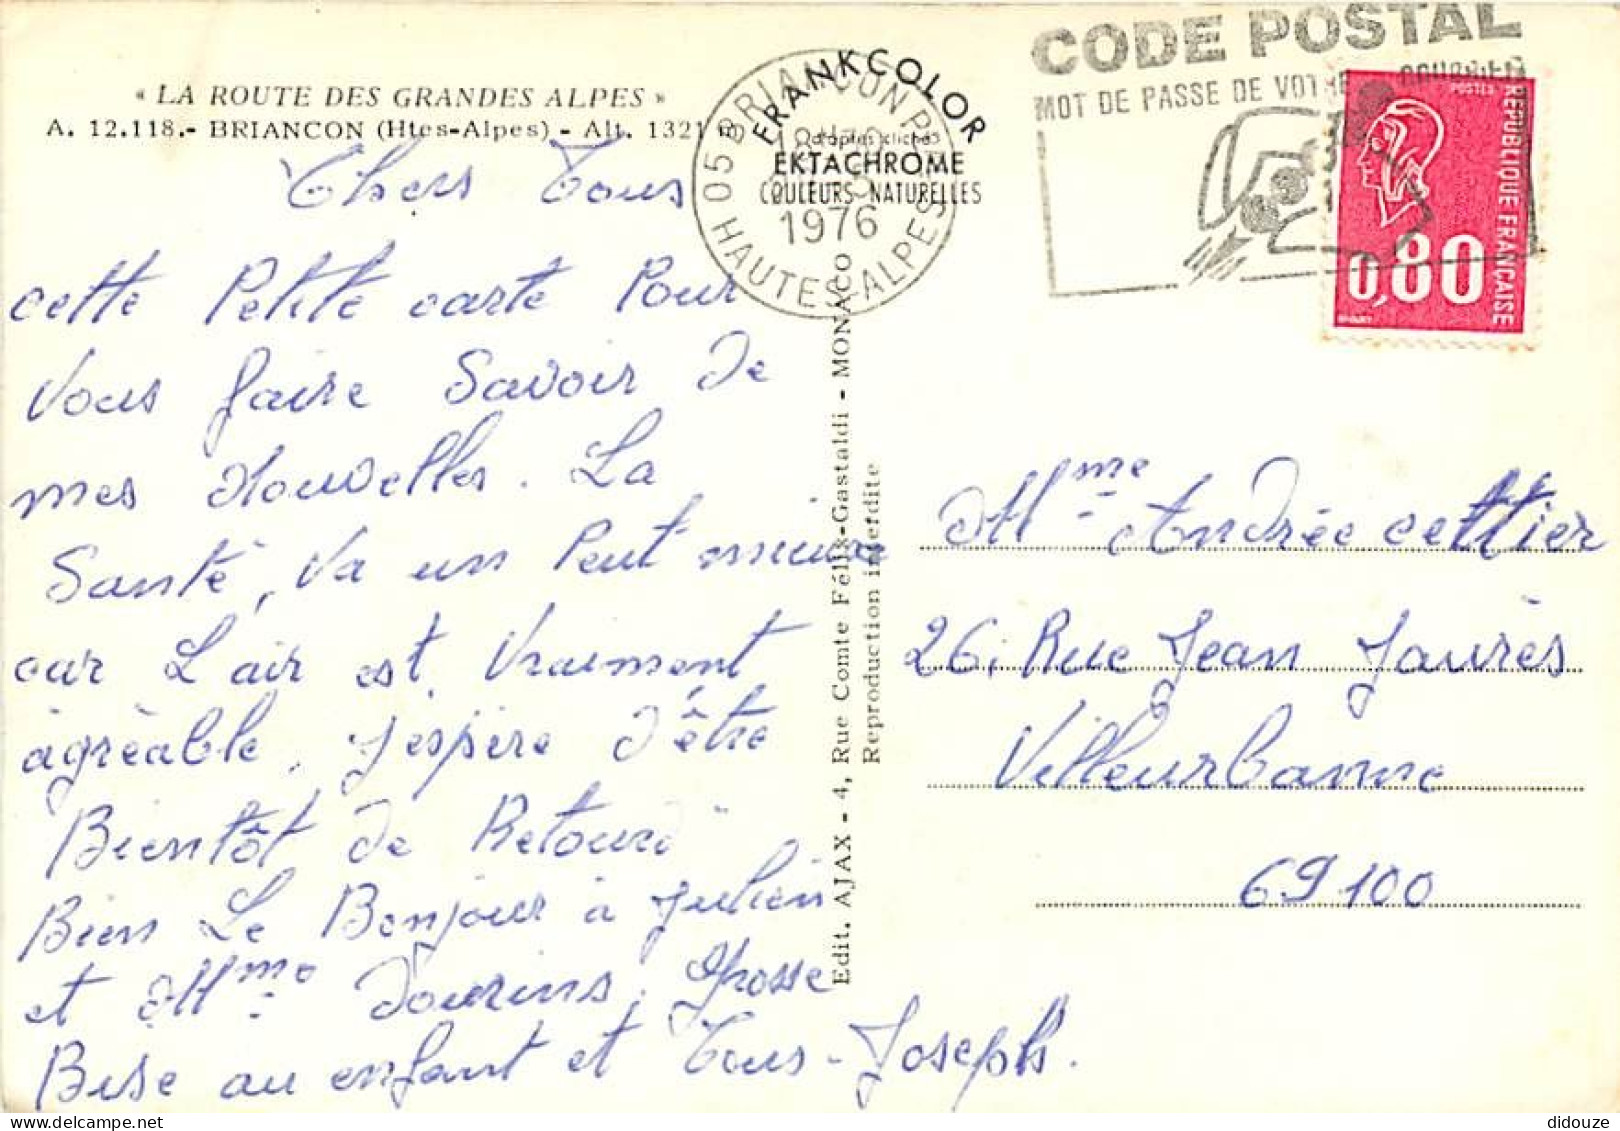 « LA ROUTE DES GRANDES ALPES »
A. 12.118.- BRIANCON (Htes-Alpes) - Alt. 1321 m
Chers Tous
cette Petite carte Pour
Vous faire Savoir De
mes Nouvelles. La
Santé, Va un Peut mieux
car L'air est Vraiment
àgrèable. J'espère D'être
Bientôt De Retour
Bien Le Bonjour à Julien
et Mme Dourins. Grosse
Bise au enfant et Tous - Joseph.
FRANKCOLOR
d'après cliché
EKTACHROME
COULEURS NATURELLES
05 BRIANCON PAL
1976
HAUTES-ALPES
Edit. AJAX - 4, Rue Comte Félix-Gastaldi - MONACO
Reproduction interdite
CODE POSTAL
MOT DE PASSE DE VOTRE COURRIER
POSTES
REPUBLIQUE FRANÇAISE
0,80
Mme Andrée cettier
26, Rue Jean Jaurès
Villeurbanne
69100
didouze